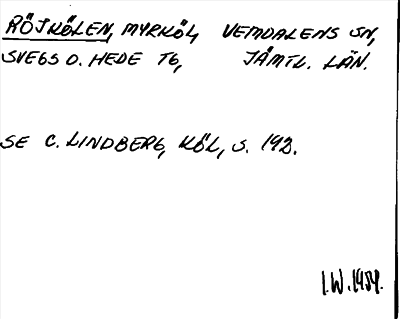 RÖJKÖLEN, MYRKÖL, VEMDALENS SN,
SVEGS O. HEDE TG, JÄMTL. LÄN.
SE C. LINDBERG, KÖL, S. 192.
I.W. 1984.